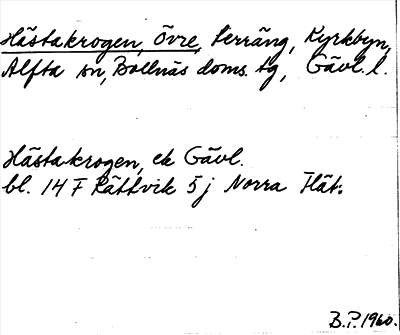 Hästakrogen, Övre, terräng, Kyrkbyn,
Alfta sn, Bollnäs doms. tg, Gävl. l.
Hästakrogen, ek Gävl.
bl. 14 F Rättvik 5 j Norra
B.P. 1960.